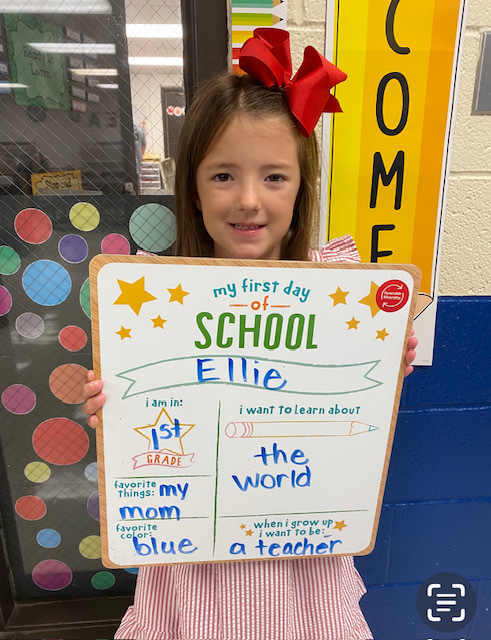 COME
my first day
of
SCHOOL
Ellie
i am in:
1st
GRADE
i want to learn about
the
world
favorite
things: my
mom
favorite
color:
blue
when i grow up
i want to be:
a teacher